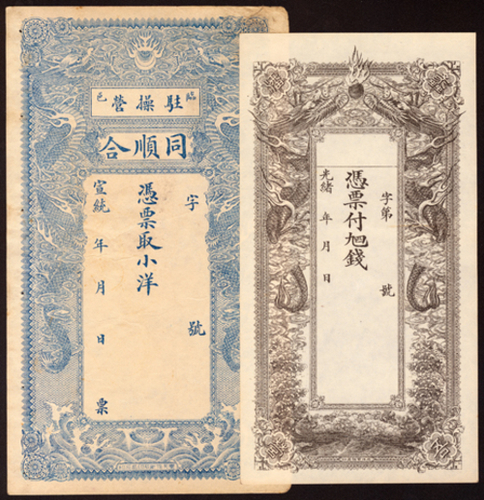 臨邑
駐操營
同順合
字 號
憑票取小洋
宣統 年 月 日 票
字第 號
憑票付九八錢
光緒 年 月 日